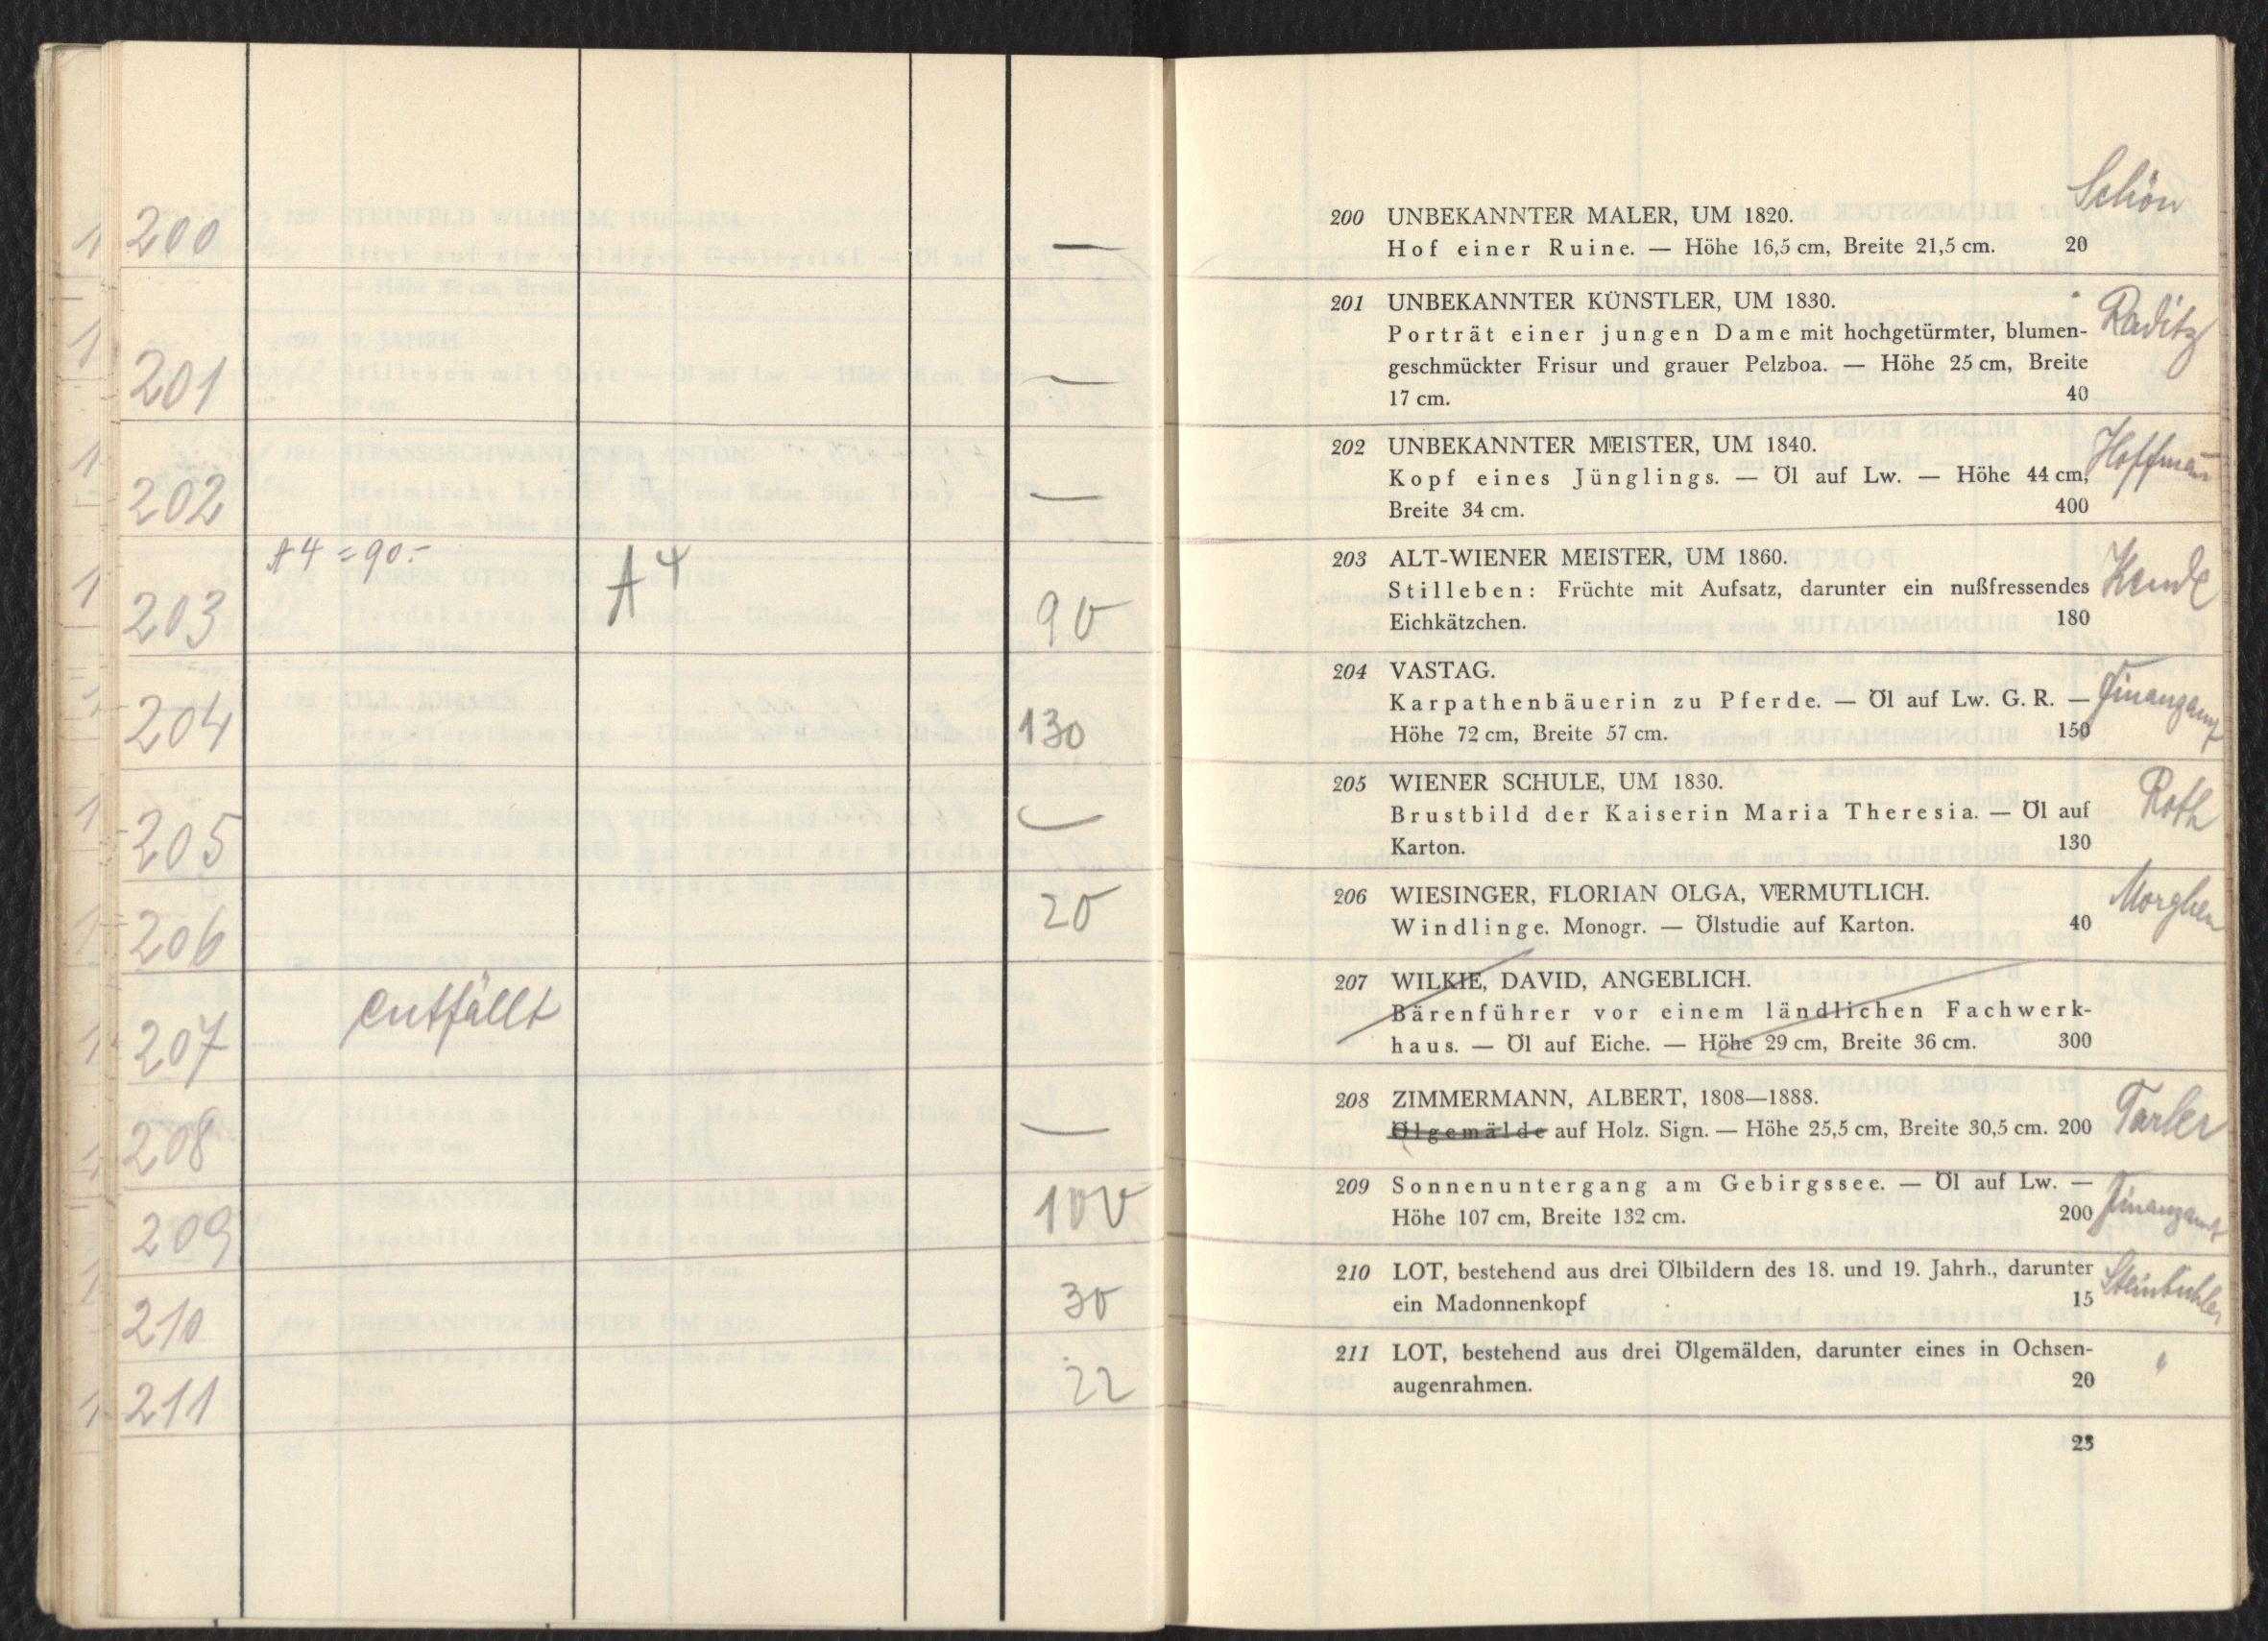 200 —
201 —
202 —
A4 = 90.-
203 A4 90
204 130
205 —
206 20
207 entfällt
208 —
209 100
210 30
211 22
Schön
200 UNBEKANNTER MALER, UM 1820.
Hof einer Ruine. — Höhe 16,5 cm, Breite 21,5 cm. 20
201 UNBEKANNTER KÜNSTLER, UM 1830.
Raditz
Porträt einer jungen Dame mit hochgetürmter, blumen-
geschmückter Frisur und grauer Pelzboa. — Höhe 25 cm, Breite
17 cm. 40
202 UNBEKANNTER MEISTER, UM 1840.
Hoffman
Kopf eines Jünglings. — Öl auf Lw. — Höhe 44 cm,
Breite 34 cm. 400
203 ALT-WIENER MEISTER, UM 1860.
Kende
Stilleben: Früchte mit Aufsatz, darunter ein nußfressendes
Eichkätzchen. 180
204 VASTAG.
Finanzamt
Karpathenbäuerin zu Pferde. — Öl auf Lw. G. R. —
Höhe 72 cm, Breite 57 cm. 150
205 WIENER SCHULE, UM 1830.
Roth
Brustbild der Kaiserin Maria Theresia. — Öl auf
Karton. 130
206 WIESINGER, FLORIAN OLGA, VERMUTLICH.
Morghen
Windlinge. Monogr. — Ölstudie auf Karton. 40
207 WILKIE, DAVID, ANGEBLICH.
Bärenführer vor einem ländlichen Fachwerk-
haus. — Öl auf Eiche. — Höhe 29 cm, Breite 36 cm. 300
208 ZIMMERMANN, ALBERT, 1808—1888.
Ölgemälde auf Holz. Sign. — Höhe 25,5 cm, Breite 30,5 cm. 200
209 Sonnenuntergang am Gebirgssee. — Öl auf Lw. —
Höhe 107 cm, Breite 132 cm. 200 Finanzamt
210 LOT, bestehend aus drei Ölbildern des 18. und 19. Jahrh., darunter
ein Madonnenkopf 15
211 LOT, bestehend aus drei Ölgemälden, darunter eines in Ochsen-
augenrahmen. 20
25